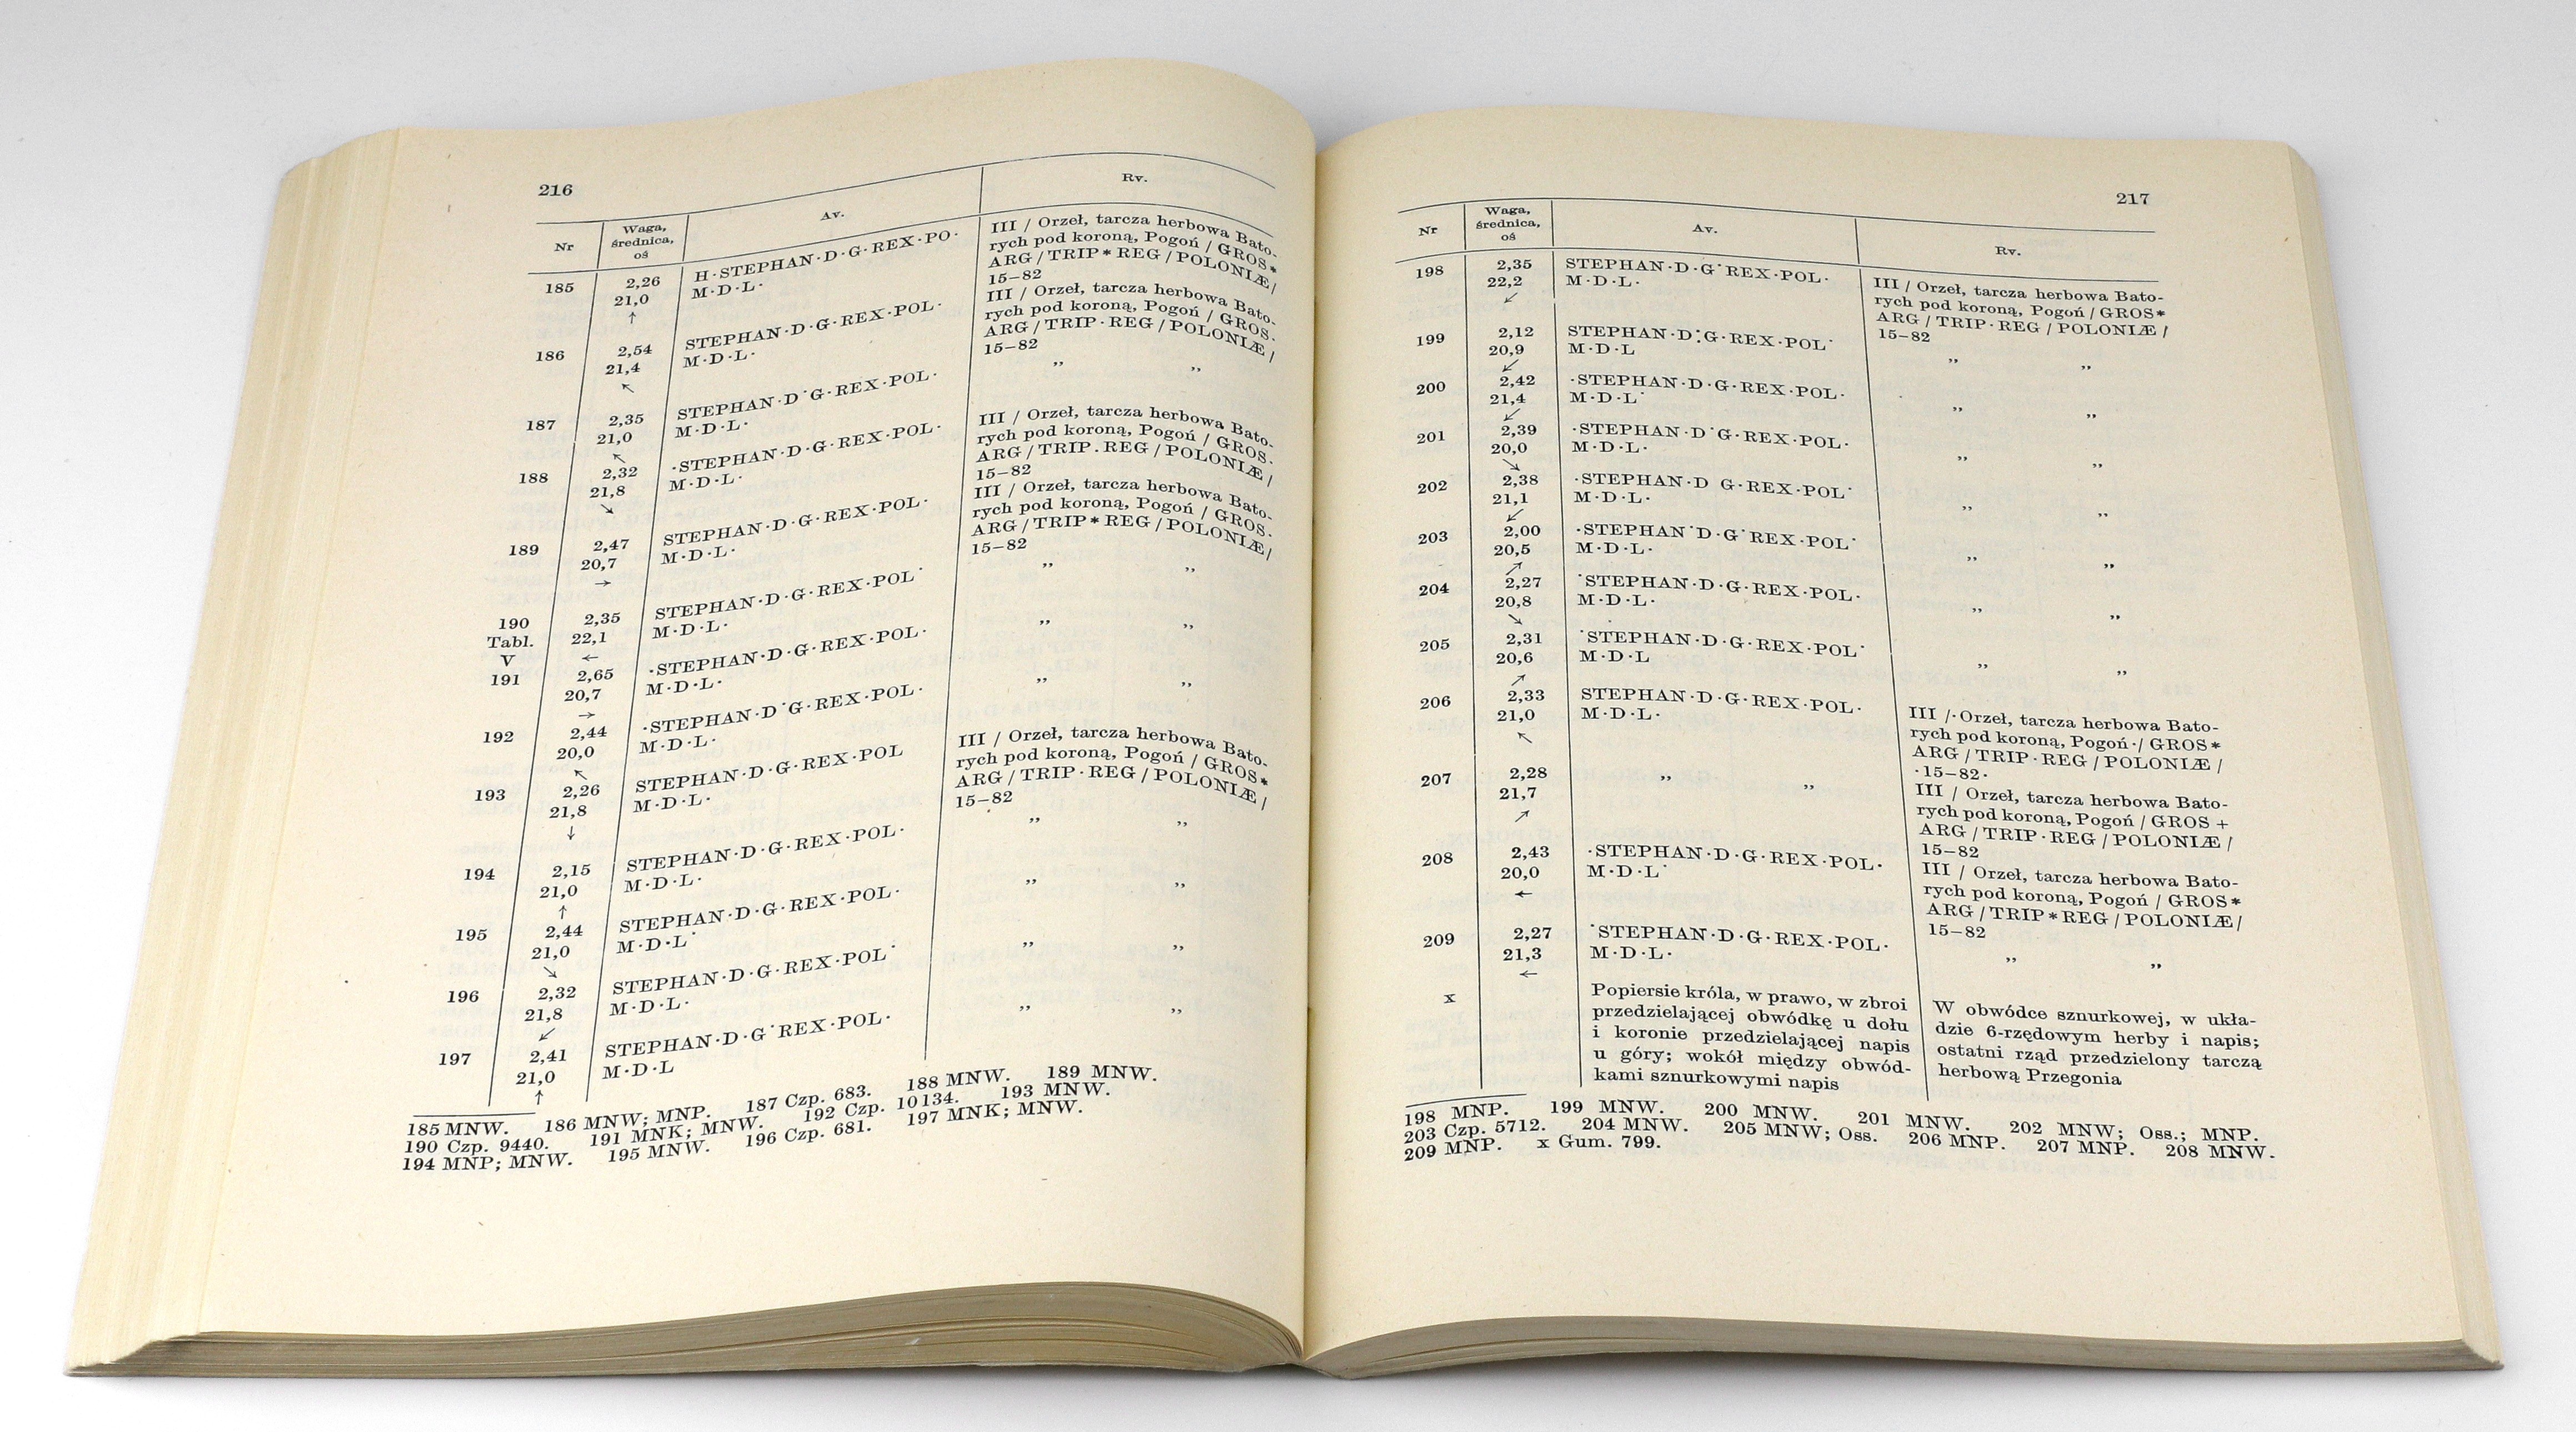 216
Nr
Waga,
średnica,
oś
Av.
Rv.
185
2,26
21,0
↑
H·STEPHAN·D·G·REX·PO·
M·D·L·
III / Orzeł, tarcza herbowa Bato-
rych pod koroną, Pogoń / GROS*
ARG / TRIP* REG / POLONIÆ /
15–82
186
2,54
21,4
↖
STEPHAN·D·G·REX·POL·
M·D·L·
III / Orzeł, tarcza herbowa Bato-
rych pod koroną, Pogoń / GROS·
ARG / TRIP·REG / POLONIÆ /
15–82
187
2,35
21,0
↖
STEPHAN·D˙G·REX·POL·
M·D·L·
„ „
188
2,32
21,8
↘
·STEPHAN·D·G·REX·POL·
M·D·L·
III / Orzeł, tarcza herbowa Bato-
rych pod koroną, Pogoń / GROS·
ARG / TRIP.REG / POLONIÆ /
15–82
189
2,47
20,7
→
STEPHAN·D·G·REX·POL·
M·D·L·
III / Orzeł, tarcza herbowa Bato-
rych pod koroną, Pogoń / GROS·
ARG / TRIP* REG / POLONIÆ /
15–82
190
Tabl.
V
2,35
22,1
←
STEPHAN·D·G·REX·POL˙
M·D·L·
„ „
191
2,65
20,7
→
·STEPHAN·D·G·REX·POL·
M·D·L·
„ „
192
2,44
20,0
↖
·STEPHAN·D˙G·REX·POL·
M·D·L·
„ „
193
2,26
21,8
↓
STEPHAN·D·G·REX·POL
M·D·L·
III / Orzeł, tarcza herbowa Bato-
rych pod koroną, Pogoń / GROS*
ARG / TRIP·REG / POLONIÆ /
15–82
194
2,15
21,0
↑
STEPHAN·D·G·REX·POL·
M·D·L·
„ „
195
2,44
21,0
↘
STEPHAN·D·G·REX·POL·
M·D·L˙
„ „
196
2,32
21,8
↙
STEPHAN·D·G·REX·POL˙
M·D·L·
„ „
197
2,41
21,0
↑
STEPHAN·D·G˙REX·POL·
M·D·L
„ „
185 MNW. 186 MNW; MNP. 187 Czp. 683. 188 MNW. 189 MNW.
190 Czp. 9440. 191 MNK; MNW. 192 Czp. 10134. 193 MNW.
194 MNP; MNW. 195 MNW. 196 Czp. 681. 197 MNK; MNW.
217
Nr
Waga,
średnica,
oś
Av.
Rv.
198
2,35
22,2
↙
STEPHAN·D·G˙REX·POL·
M·D·L·
III / Orzeł, tarcza herbowa Bato-
rych pod koroną, Pogoń / GROS*
ARG / TRIP·REG / POLONIÆ /
15–82
199
2,12
20,9
↙
STEPHAN·D:G·REX·POL˙
M·D·L
„ „
200
2,42
21,4
↙
·STEPHAN·D·G·REX·POL·
M·D·L˙
„ „
201
2,39
20,0
↘
·STEPHAN·D˙G·REX·POL·
M·D·L·
„ „
202
2,38
21,1
↙
·STEPHAN·D G·REX·POL˙
M·D·L·
„ „
203
2,00
20,5
↗
·STEPHAN˙D·G˙REX·POL˙
M·D·L·
„ „
204
2,27
20,8
↘
˙STEPHAN·D·G·REX·POL·
M·D·L·
„ „
205
2,31
20,6
↗
˙STEPHAN·D·G·REX·POL˙
M·D·L
„ „
206
2,33
21,0
↖
STEPHAN·D·G·REX·POL·
M·D·L·
III /·Orzeł, tarcza herbowa Bato-
rych pod koroną, Pogoń·/ GROS*
ARG / TRIP·REG / POLONIÆ /
·15–82·
207
2,28
21,7
↗
„ „
III / Orzeł, tarcza herbowa Bato-
rych pod koroną, Pogoń / GROS +
ARG / TRIP·REG / POLONIÆ /
15–82
208
2,43
20,0
←
·STEPHAN·D·G·REX·POL·
M·D·L˙
III / Orzeł, tarcza herbowa Bato-
rych pod koroną, Pogoń / GROS*
ARG / TRIP*REG / POLONIÆ/
15–82
209
2,27
21,3
←
˙STEPHAN·D·G·REX·POL·
M·D·L·
„ „
x
Popiersie króla, w prawo, w zbroi
przedzielającej obwódkę u dołu
i koronie przedzielającej napis
u góry; wokół między obwód-
kami sznurkowymi napis
W obwódce sznurkowej, w ukła-
dzie 6-rzędowym herby i napis;
ostatni rząd przedzielony tarczą
herbową Przegonia
198 MNP. 199 MNW. 200 MNW. 201 MNW. 202 MNW; Oss.; MNP.
203 Czp. 5712. 204 MNW. 205 MNW; Oss. 206 MNP. 207 MNP. 208 MNW.
209 MNP. x Gum. 799.